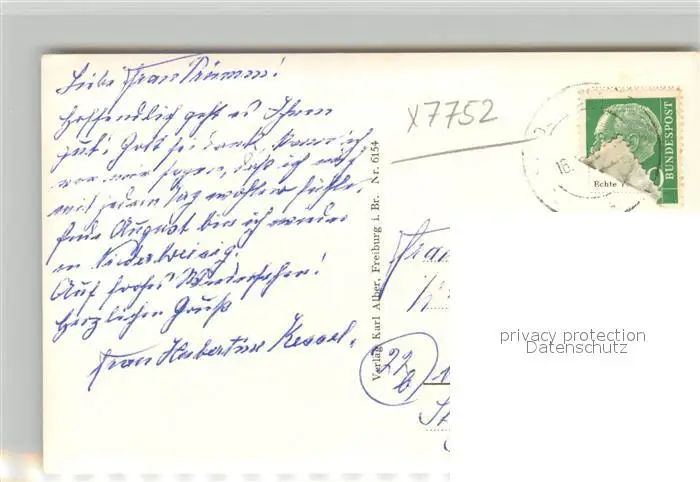 Liebe Frau Prümm!
Hoffendlich geht es Ihnen
gut. Gott sei dank, kann ich
von mir sagen, daß ich mich
mit jedem Tag wohler fühle.
Ende August bin ich wieder
in
Auf frohes Wiedersehen!
Herzlichen Gruß
Frau Hubertine Kessel.
Verlag Karl Alber, Freiburg i. Br. Nr. 6154
X7752
BUNDESPOST
16.
Echte
Frau
22
b
1
privacy protection
Datenschutz